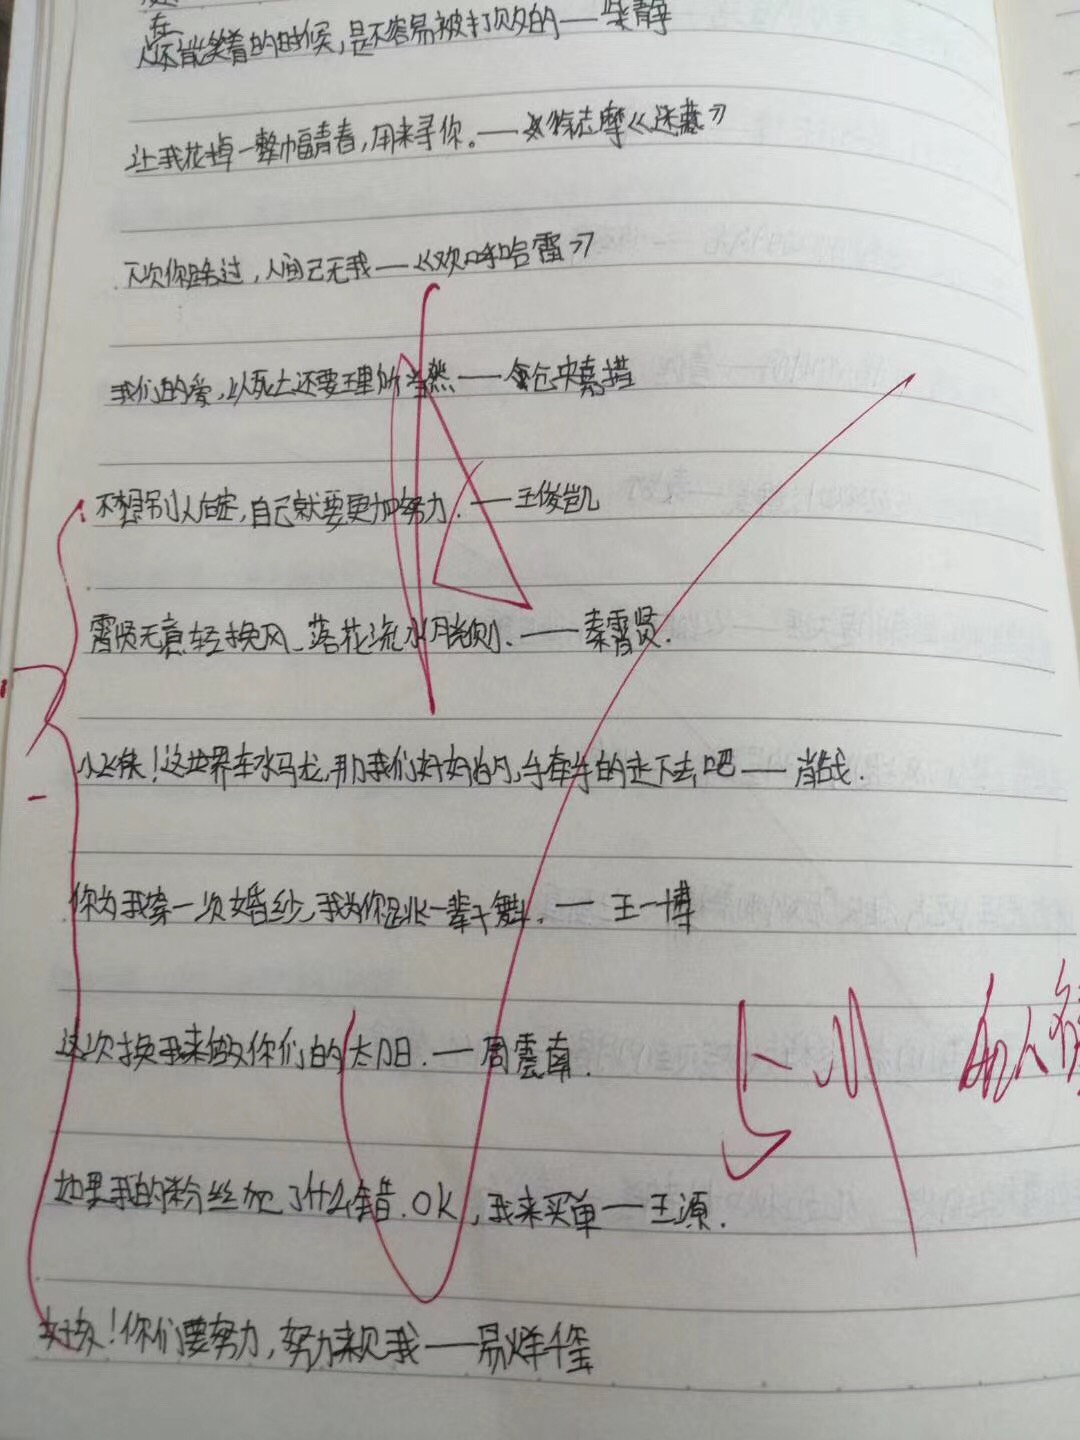 在
人还能笑着的时候，是不容易被打败的——柴静
让我花掉一整幅青春，用来寻你。——徐志摩《迷藏》
下次你路过，人间已无我——《欢呼哈雷》
我们的爱，以死亡还要理所当然——仓央嘉措
不想别人肯定，自己就要更加努力.——王俊凯
霄贤无意轻挽风、落花流水.——秦霄贤.
小飞侠！这世界车水马龙,那我们好好的,手牵手的走下去吧——肖战.
你为我穿一次婚纱,我为你跳一辈子舞.——王一博
这次换我来做你们的太阳.——周震南.
如果我的粉丝犯了什么错.OK,我来买单——王源.
好孩！你们要努力,努力来见我——易烊千玺